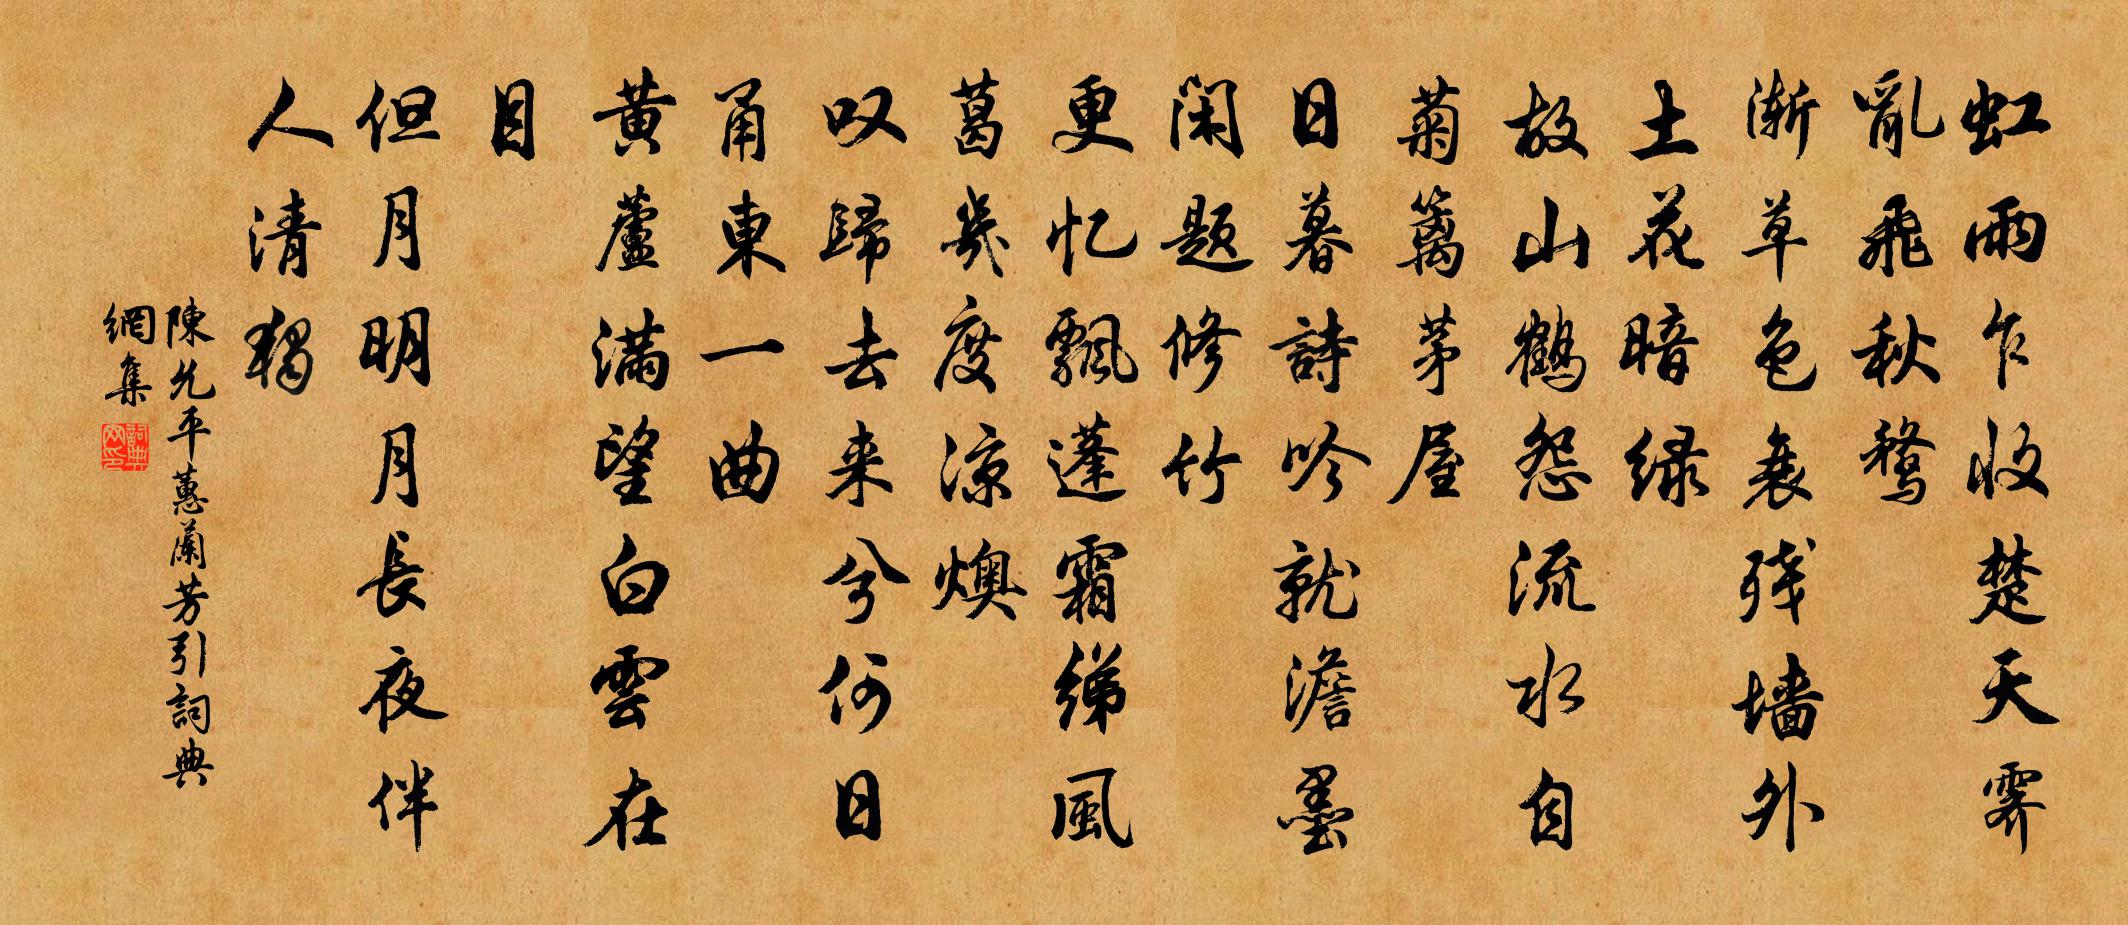 虹雨乍收楚天霽
亂飛秋鶩
漸草色衰残墙外
土花暗绿
故山鶴怨流水自
菊籬茅屋
日暮詩吟就澹墨
闲题修竹
更忆飄蓬霜绨風
葛幾度凉燠
叹歸去来兮何日
甬東一曲
黄蘆满望白雲在
目
但月明月長夜伴
人清獨
陳允平蕙蘭芳引詞典
網集